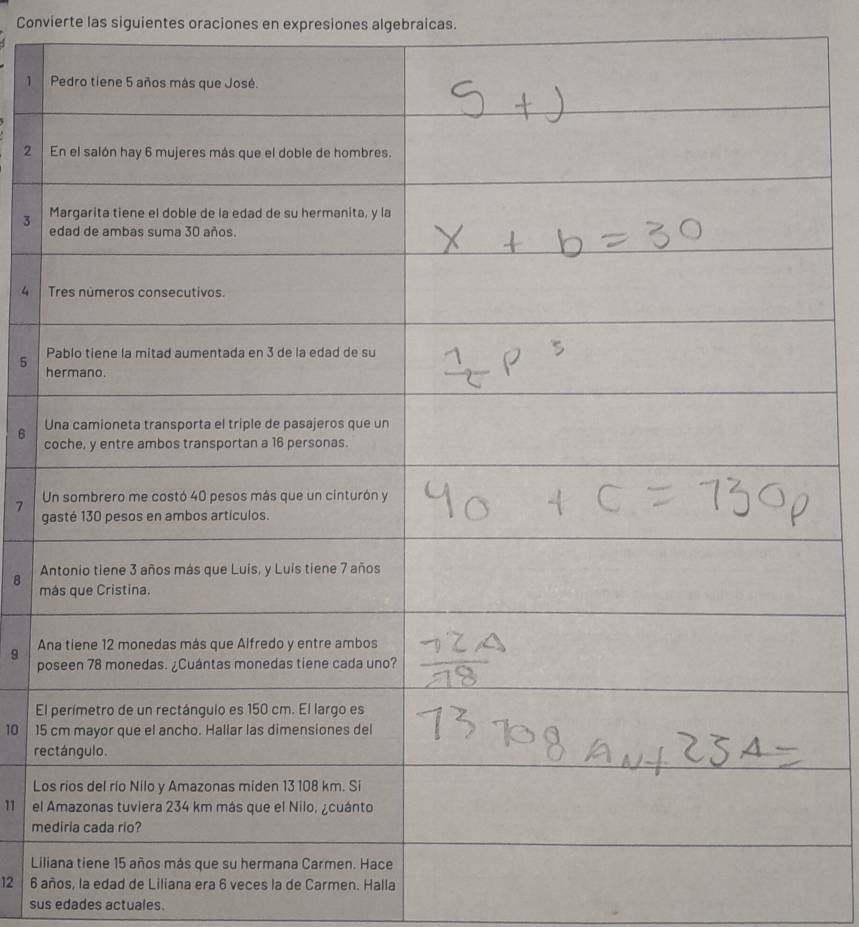 Convierte las siguientes oraciones en expresiones algebraicas.
1 Pedro tiene 5 años más que José.
5 + J
2 En el salón hay 6 mujeres más que el doble de hombres.
3 Margarita tiene el doble de la edad de su hermanita, y la
edad de ambas suma 30 años.
x + b = 30
4 Tres números consecutivos.
5 Pablo tiene la mitad aumentada en 3 de la edad de su
hermano.
1/2 p
6 Una camioneta transporta el triple de pasajeros que un
coche, y entre ambos transportan a 16 personas.
7 Un sombrero me costó 40 pesos más que un cinturón y
gasté 130 pesos en ambos artículos.
40 + C = 130p
8 Antonio tiene 3 años más que Luis, y Luis tiene 7 años
más que Cristina.
9 Ana tiene 12 monedas más que Alfredo y entre ambos
poseen 78 monedas. ¿Cuántas monedas tiene cada uno?
12A
78
10 El perímetro de un rectángulo es 150 cm. El largo es
15 cm mayor que el ancho. Hallar las dimensiones del
rectángulo.
13 108 AN + 23A =
11 Los ríos del río Nilo y Amazonas miden 13 108 km. Si
el Amazonas tuviera 234 km más que el Nilo, ¿cuánto
mediría cada río?
12 Liliana tiene 15 años más que su hermana Carmen. Hace
6 años, la edad de Liliana era 6 veces la de Carmen. Halla
sus edades actuales.